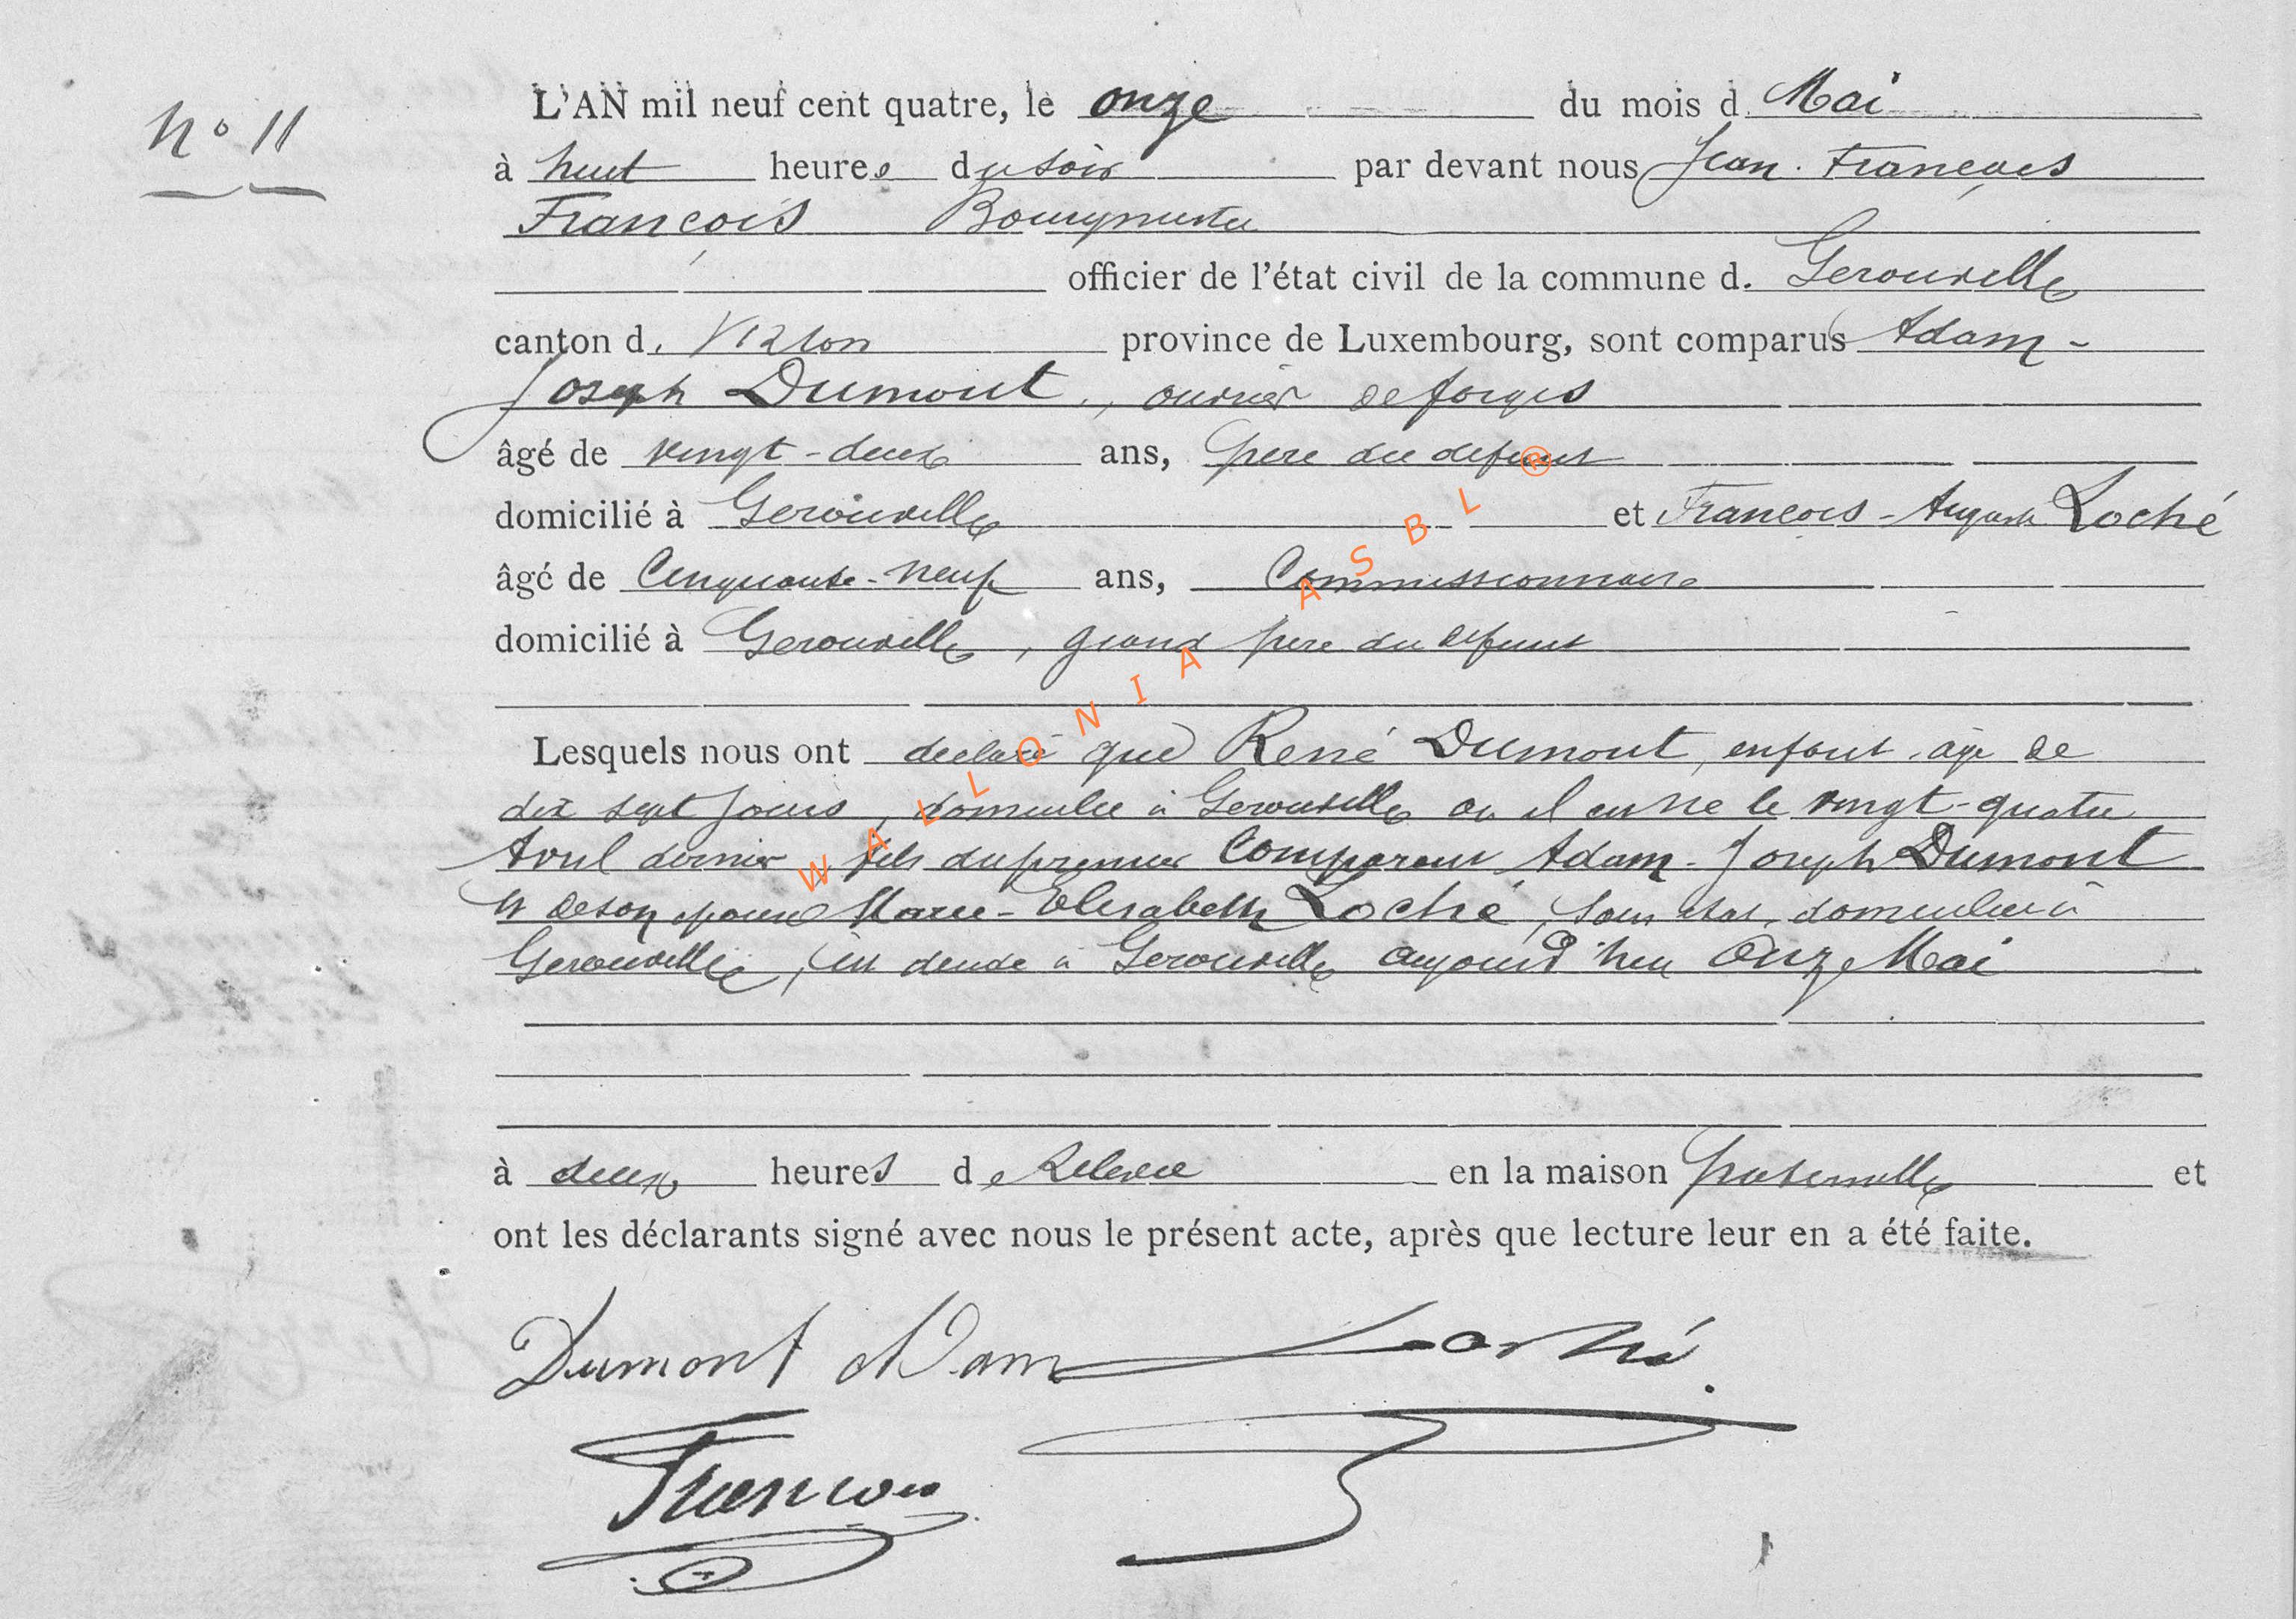 N° 11
L'AN mil neuf cent quatre, le onze du mois d. Mai
à huit heures du soir par devant nous Jean-François
François Bourgmestre
officier de l'état civil de la commune d. Gerouville
canton d. Virton province de Luxembourg, sont comparus Adam-
Joseph Dumont, ouvrier de forges
âgé de vingt-deux ans, père du defunt
domicilié à Gerouville et François-Auguste Loché
âgé de Cinquante-neuf ans, Commissionnaire
domicilié à Gerouville, grand père du defunt
Lesquels nous ont declaré que René Dumont, enfant âgé de
dix sept jours, domicilié à Gerouville ou il est né le vingt-quatre
Avril dernier, fils du premier Comparant Adam-Joseph Dumont
et de son épouse Marie-Elisabeth Loché, sans état, domiciliée à
Gerouville, est décédé à Gerouville aujourd'hui Onze Mai
à deux heures de Relevée en la maison paternelle et
ont les déclarants signé avec nous le présent acte, après que lecture leur en a été faite.
Dumont Adam Loché
François
WALLONIA ASBL ®